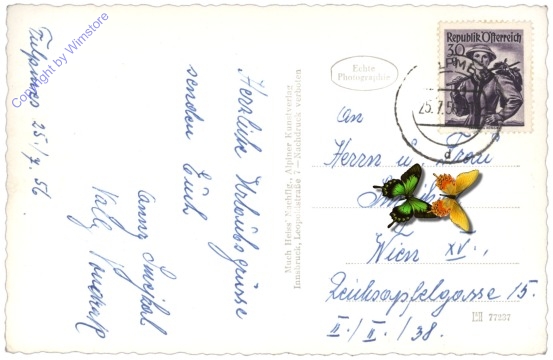 Copyright by Wimstore
Fulpmes 25./7. 56
Herzliche Urlaubsgrüsse
senden Euch
Anny
Much Heiss' Nachflg., Alpiner Kunstverlag
Innsbruck, Leopoldstraße 7 — Nachdruck verboten
Echte
Photographie
Republik Österreich
30
25.7.5
An
Herrn u. Frau
Wien XV.,
Zeichsapfelgasse 15.
II./II./38.
77337